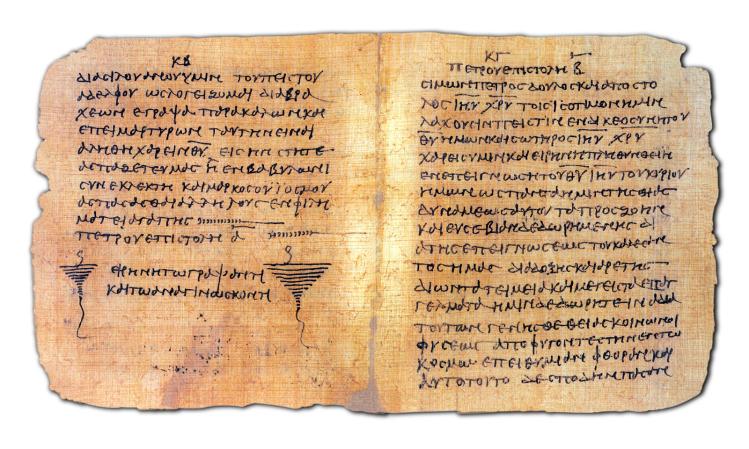 ΚΒ
διασιλουανωυυμιν τουπειστου
αδελφου ωσλογειζομαι διαβρα
χεων εγραψα παρακαλωνκαι
επειμαρτυρων ταυτηνειναι
αληθηχαρεινθ̅υ̅ εισ ην στητε
ασπαζετευμασ η ενβαβυλωνι
συνεκλεκτη καιμαρκοσουιοσμου
ασπασασθαιαλληλουσ ενφιλη
ματειαγαπησ
πετρουεπιστολη α̅
ειρηνητωγραψαντι
καιτωαναγινωσκοντι
ΚΓ
πετρουεπιστολη β̅
σιμωνπετροσ δουλοσκαιαποστο
λοσ ι̅η̅υ̅ χ̅ρ̅υ̅ τοισ ισοτιμονημιν
λαχουσινπειστιν ενδικεοσυνητου
θ̅υ̅ ημωνκαισωτηροσ ι̅η̅υ̅ χ̅ρ̅υ̅
χαρεισυμινκαιειρηνηπληθυνθειη
ενεπειγνωσητουθ̅υ̅ ι̅η̅υ̅ τουκυριου
ημων ωσπανταημιντησθειασ
δυναμεωσαυτου ταπροσζωην
καιευσεβιανδεδωρημενησ δι
ατησεπειγνωσεωστουκαλεσαν
τοσ ημασ διαδοξησκαιαρετησ
διωντατειμειακαιμεγεισταεπαν
γελματα ημινδεδωρητεινα δια
τουτων γενησθε θειασ κοινωνοι
φυσεωσ αποφυγοντεστηνεντω
κοσμω επειθυμιαν φθορανκαι
αυτοτουτο δεσπουδηνπασαν